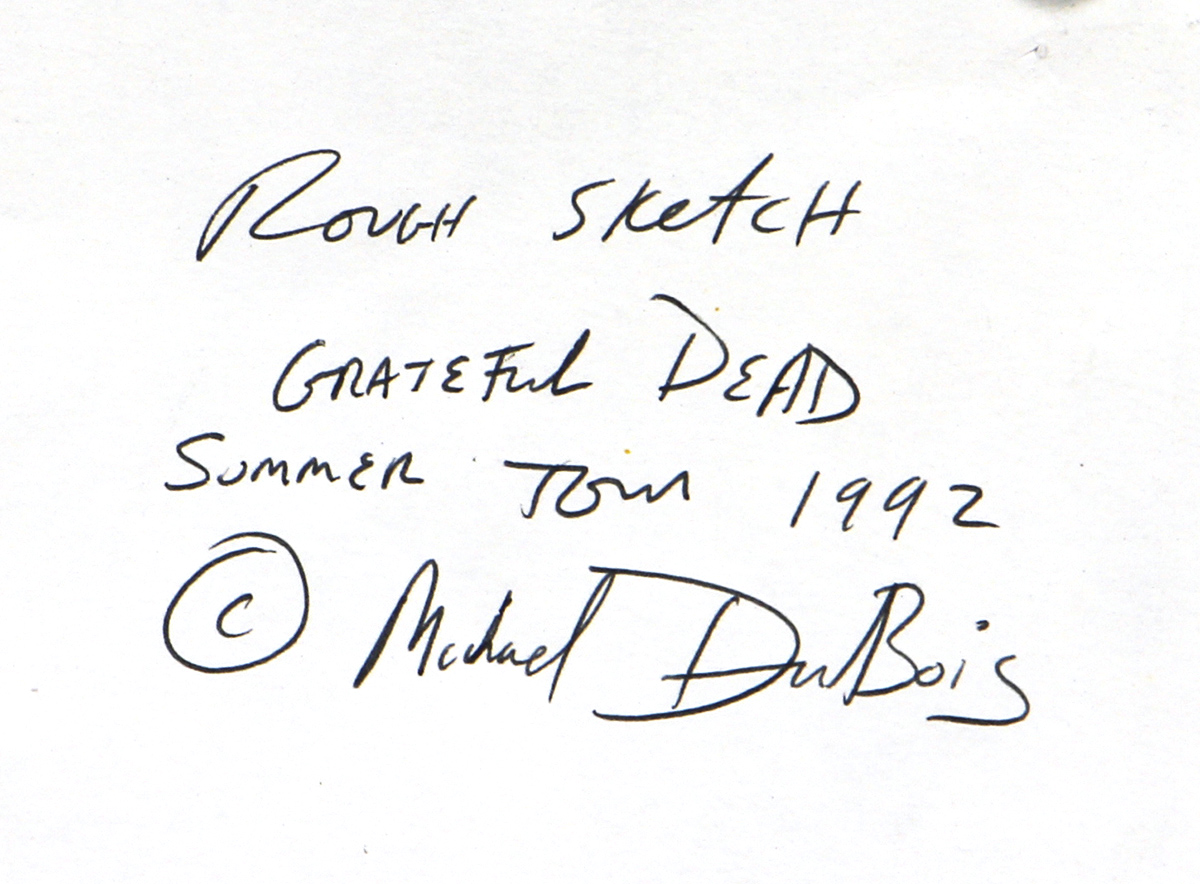 Rough Sketch
Grateful Dead
Summer Tour 1992
© Michael DuBois